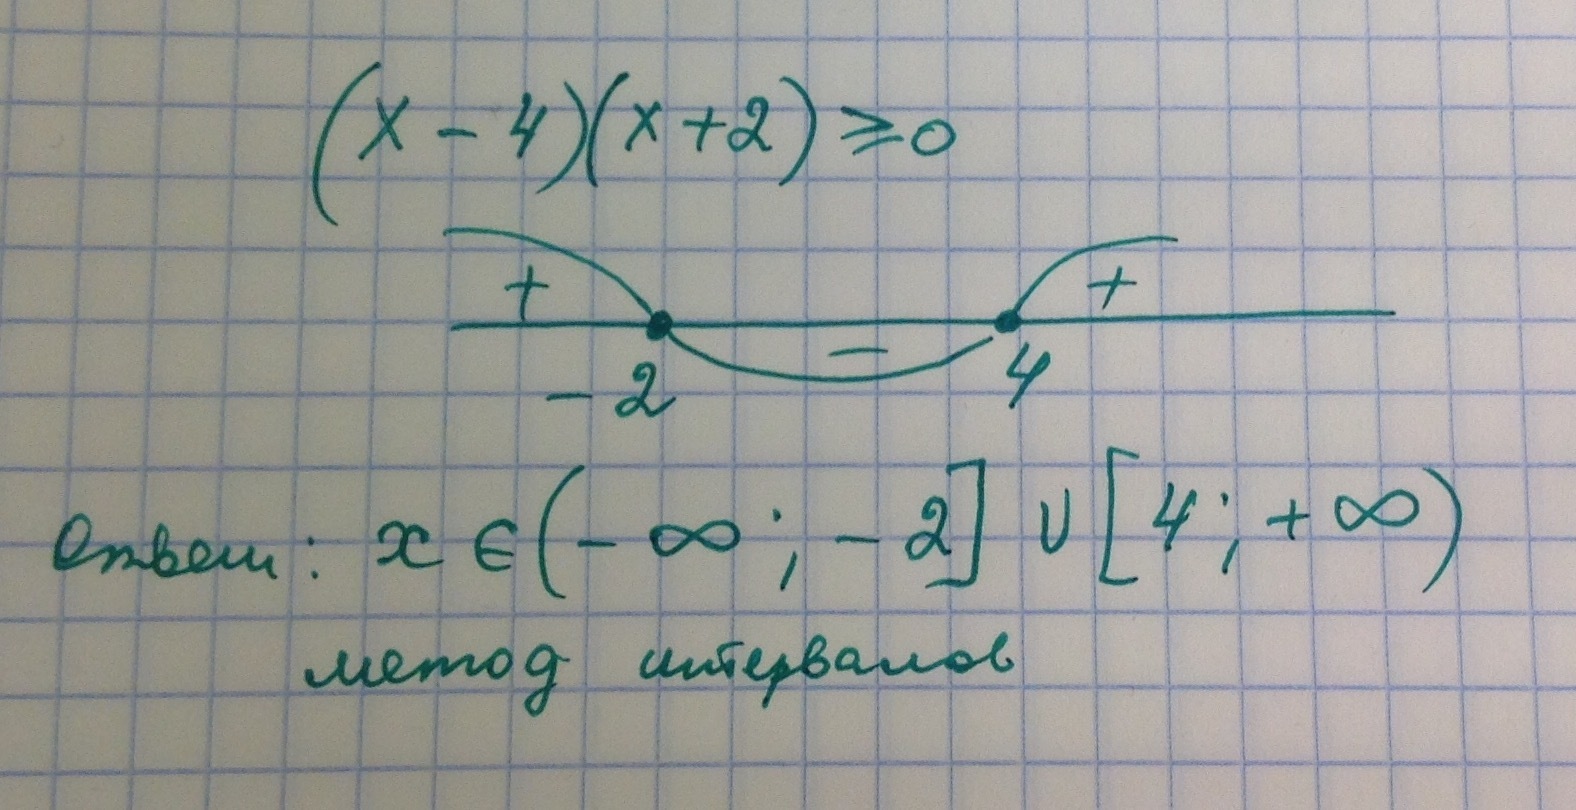 (x - 4)(x + 2) ⩾ 0
+ - +
- 2 4
Ответ: x ∈ (- ∞ ; - 2] ∪ [4 ; + ∞)
метод интервалов